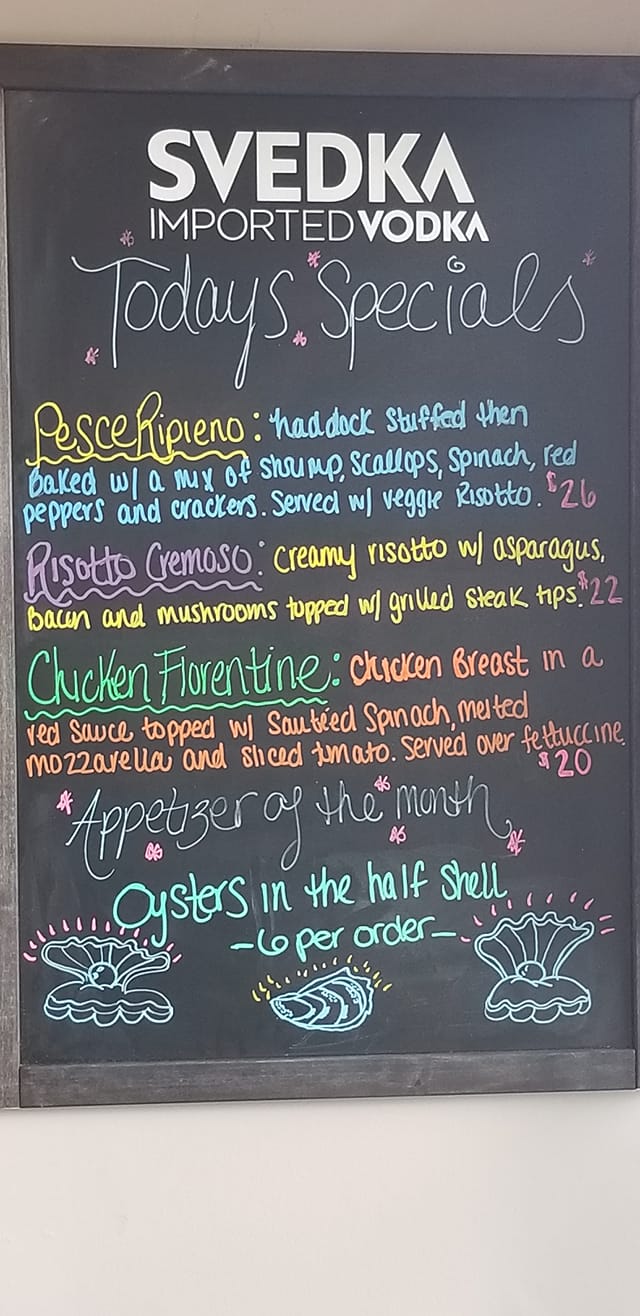 SVEDKA
IMPORTED VODKA
Todays Specials
Pesce Ripieno: haddock stuffed then
Baked w/ a mix of shrimp, scallops, spinach, red
peppers and crackers. Served w/ veggie Risotto. $26
Risotto Cremoso: creamy risotto w/ asparagus,
Bacon and mushrooms topped w/ grilled steak tips. $22
Chicken Florentine: Chicken Breast in a
red sauce topped w/ Sautéed Spinach, melted
mozzarella and sliced tomato. Served over fettuccine.
$20
Appetizer of the month
Oysters in the half shell
-6 per order-